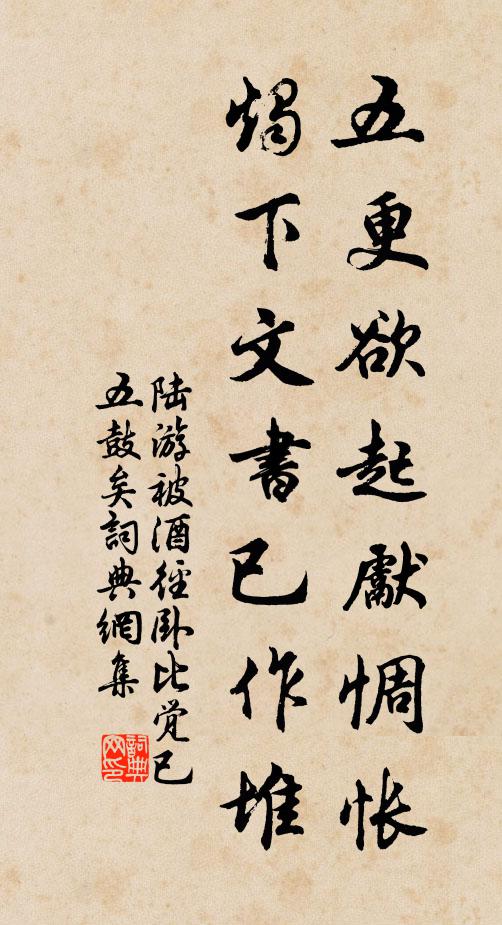 五更欲起獻惆怅
燭下文書已作堆
陆游被酒徑卧比觉已
五鼓矣詞典網集
詞典
网印